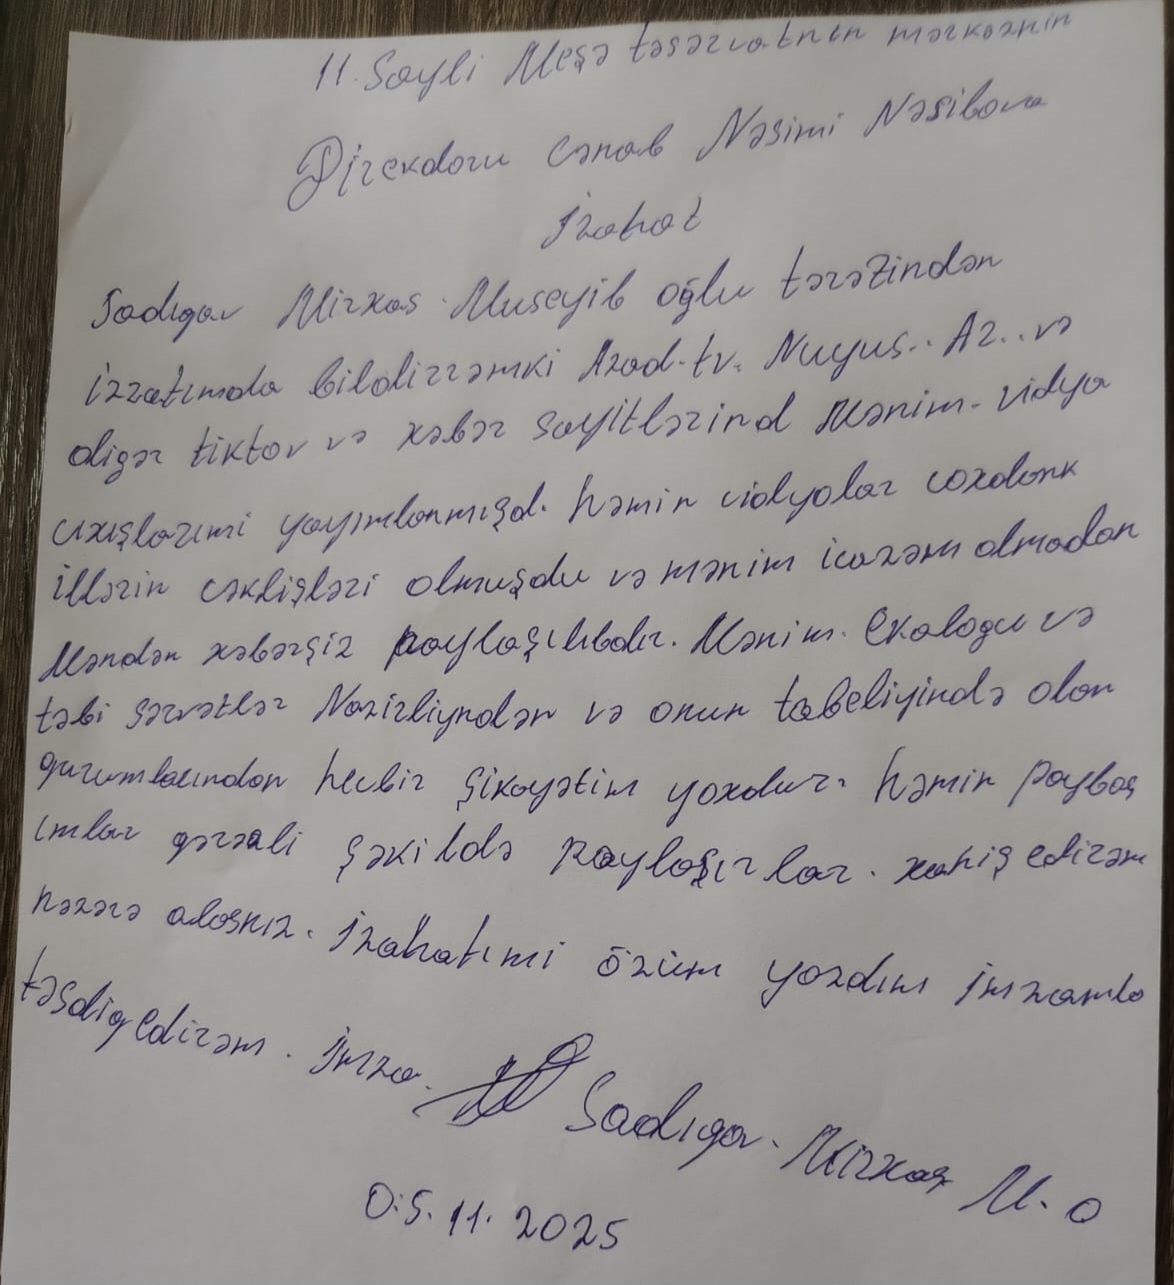 11. Saylı Meşə təsərvatnın mərkəznin
Direkdoru cənab Nəsimi Nəsibova
İzahat
Sadıqov Mirxas Museyib oğlu tərəfindən
izzatımda bildirrəmki Azad-tv. Nuyus.. Az.. və
digər tiktov və xəbər sayitlərind Mənim-vidya
cıxışlarımi yayımlanmışd. həmin vidyolar coxdank
illərin cəklişləri olmuşdu və mənim icazəm olmadan
Məndən xəbərşiz paylaşılıbdır. Mənim. Ekalogu və
təbi sərvətlər Nazirliyndən və onun tabeliyində olan
qurumlarından hecbir şikayətim yoxdur. həmin paylaş
ımlar qərəali şəkildə paylaşırlar. xahiş edirəm
nəzərə alasnız. İzahatımi özüm yazdım imzamla
təsdiq edirəm. İmza. Sadıqov. Mirxaş M. o
05.11.2025